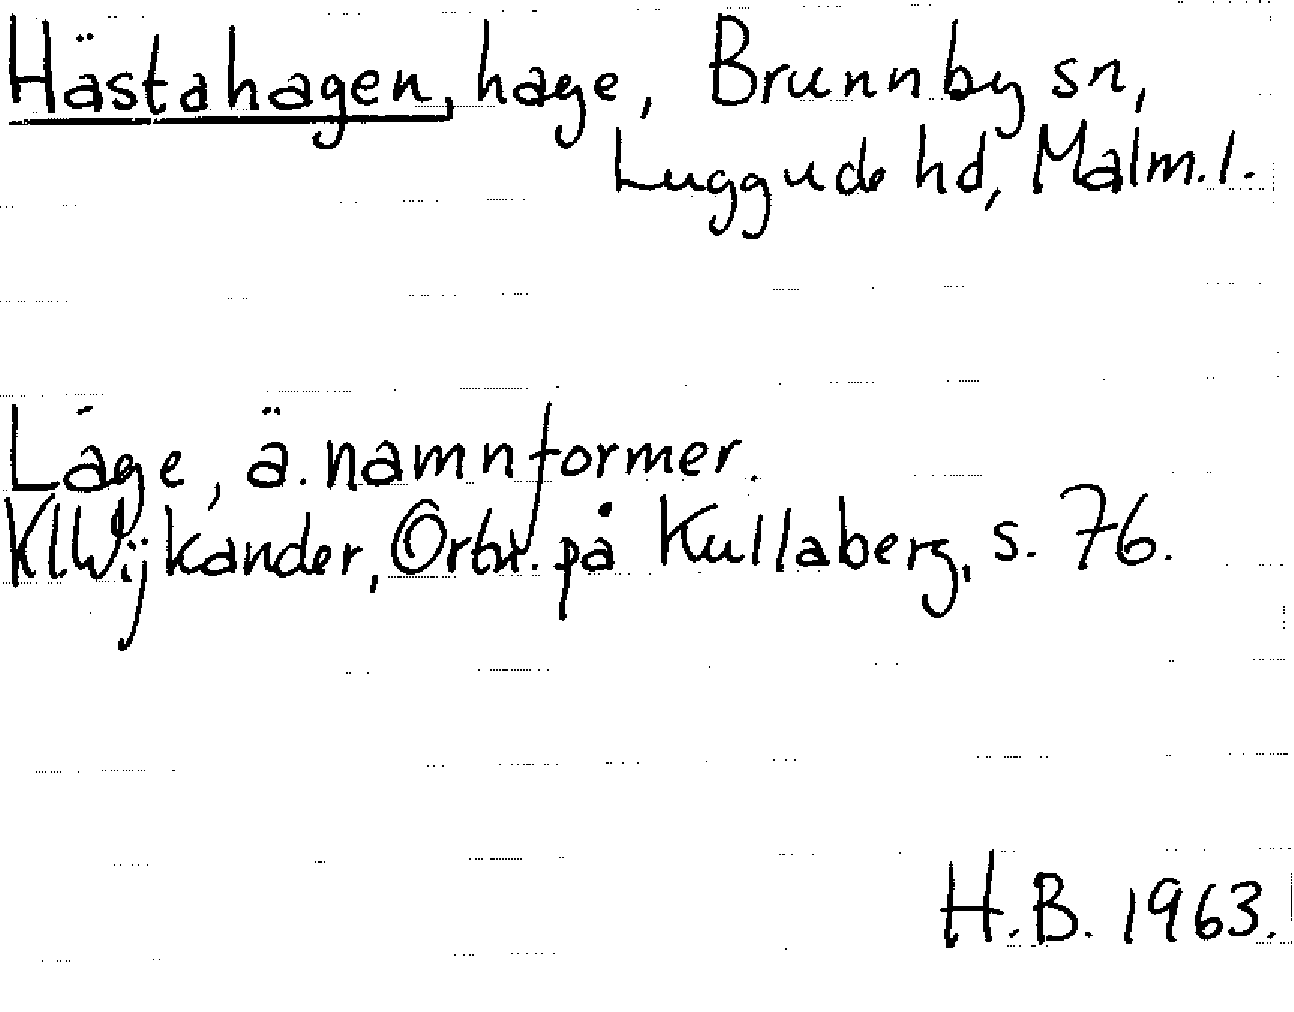 Hästahagen, hage, Brunnby sn,
Luggude hd, Malm.l.
Läge, ä. namnformer.
KlWijkander, Ortn. på Kullaberg, s. 76.
H.B. 1963.